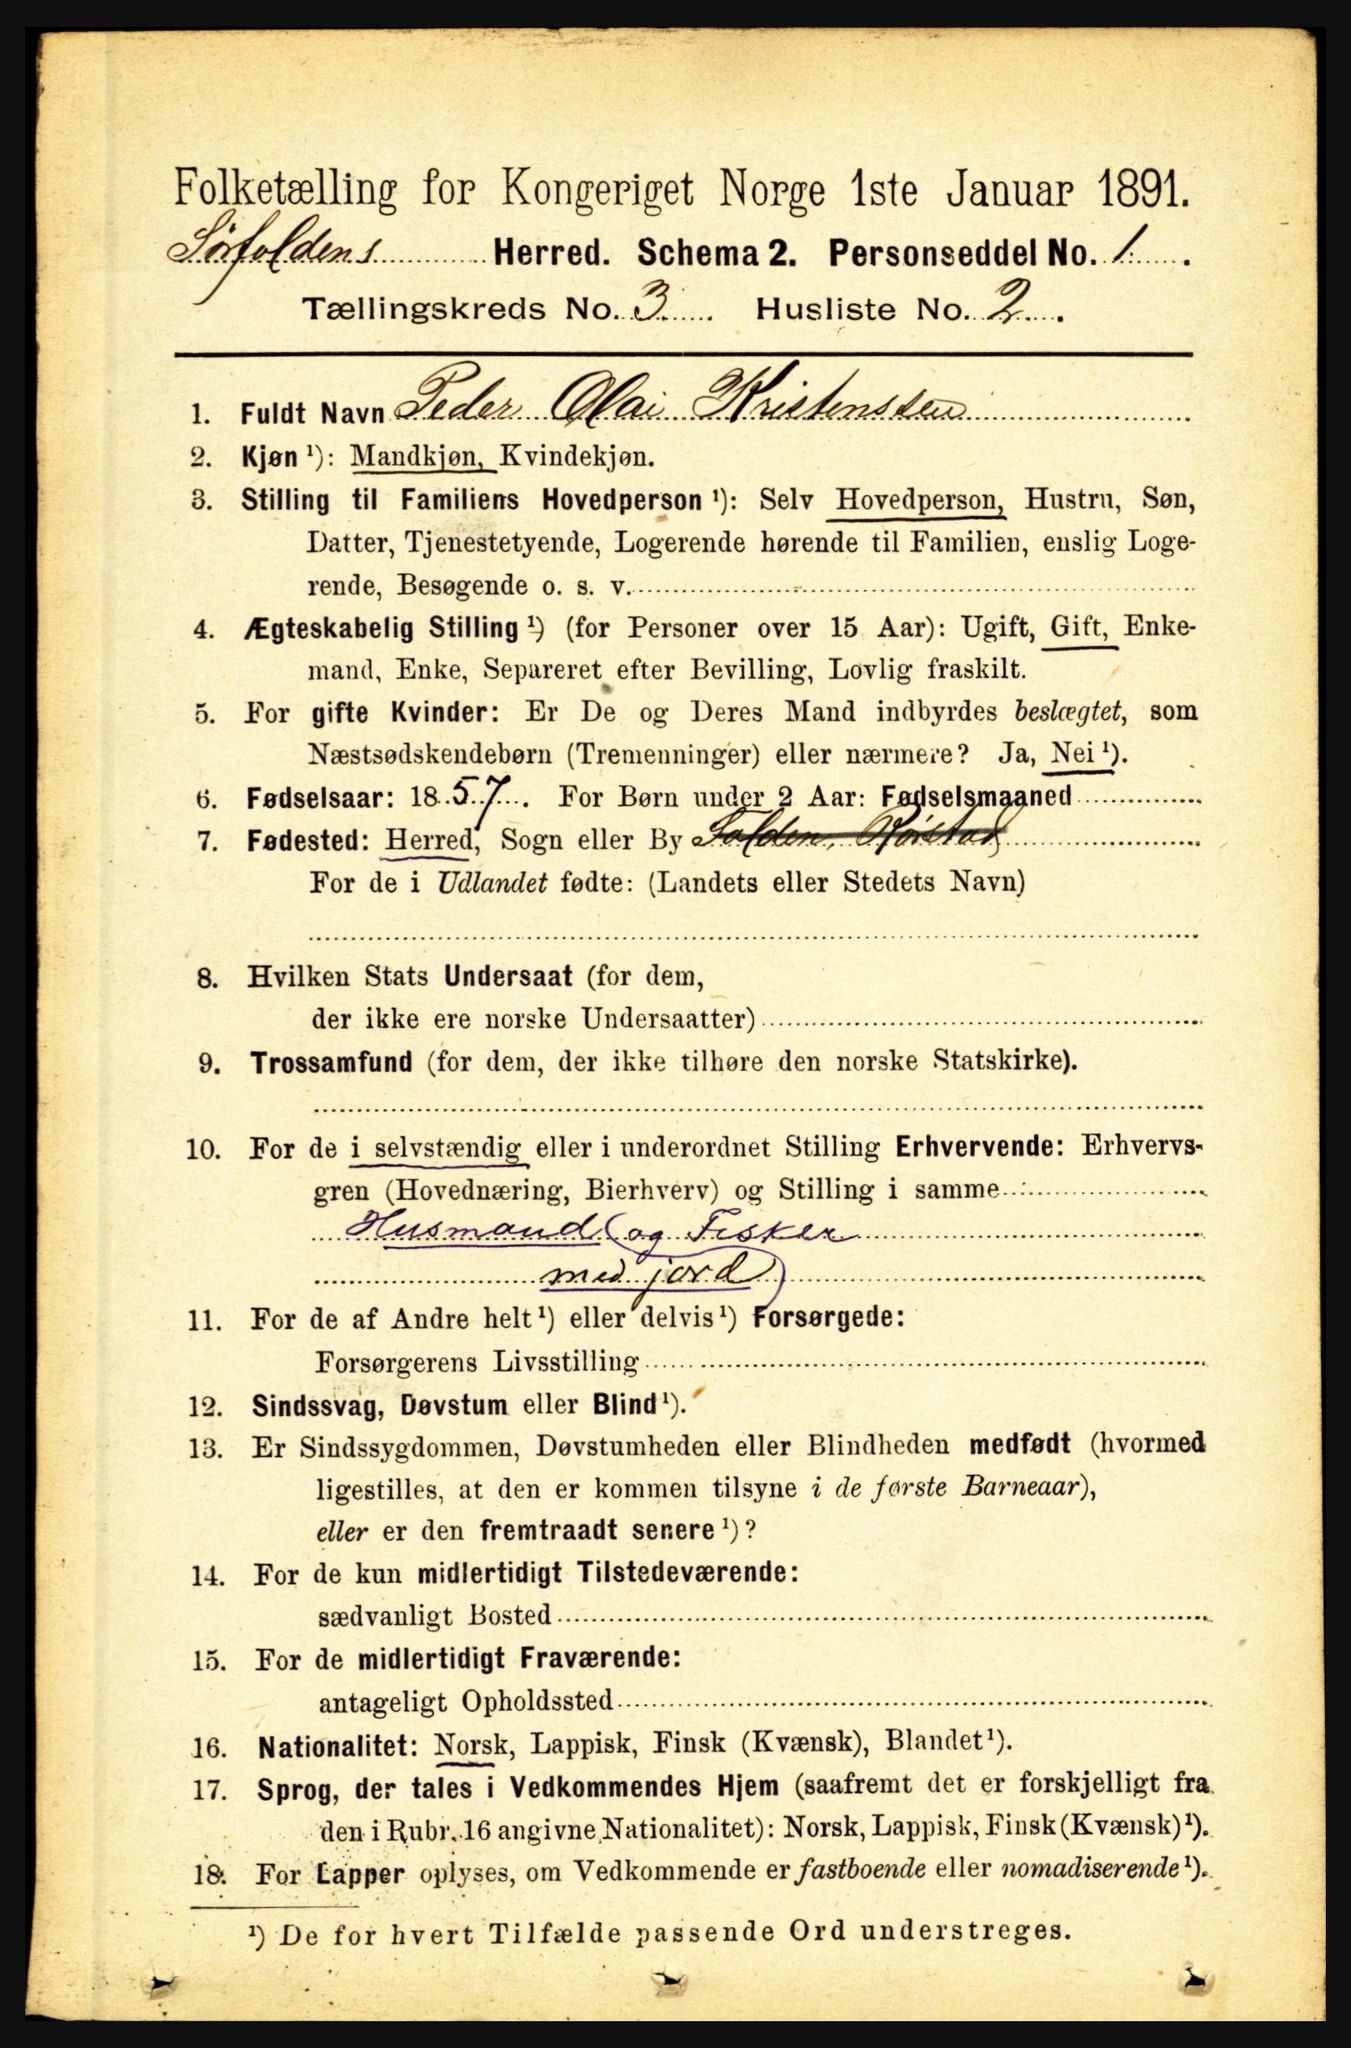 Folketælling for Kongeriget Norge 1ste Januar 1891.
Sörfoldens Herred. Schema 2. Personseddel No. 1.
Tællingskreds No. 3. Husliste No. 2.
1. Fuldt Navn Peder Olai Kristenssen
2. Kjøn ¹): Mandkjøn, Kvindekjøn.
3. Stilling til Familiens Hovedperson ¹): Selv Hovedperson, Hustru, Søn,
Datter, Tjenestetyende, Logerende hørende til Familien, enslig Loge-
rende, Besøgende o. s. v.
4. Ægteskabelig Stilling ¹) (for Personer over 15 Aar): Ugift, Gift, Enke-
mand, Enke, Separeret efter Bevilling, Lovlig fraskilt.
5. For gifte Kvinder: Er De og Deres Mand indbyrdes beslægtet, som
Næstsødskendebørn (Tremenninger) eller nærmere? Ja, Nei ¹).
6. Fødselsaar: 1857. For Børn under 2 Aar: Fødselsmaaned
7. Fødested: Herred, Sogn eller By Folden, Rörstad
For de i Udlandet fødte: (Landets eller Stedets Navn)
8. Hvilken Stats Undersaat (for dem,
der ikke ere norske Undersaatter)
9. Trossamfund (for dem, der ikke tilhøre den norske Statskirke).
10. For de i selvstændig eller i underordnet Stilling Erhvervende: Erhvervs-
gren (Hovednæring, Bierhverv) og Stilling i samme
Husmand (og Fisker
med jord)
11. For de af Andre helt ¹) eller delvis ¹) Forsørgede:
Forsørgerens Livsstilling
12. Sindssvag, Døvstum eller Blind ¹).
13. Er Sindssygdommen, Døvstumheden eller Blindheden medfødt (hvormed
ligestilles, at den er kommen tilsyne i de første Barneaar),
eller er den fremtraadt senere ¹)?
14. For de kun midlertidigt Tilstedeværende:
sædvanligt Bosted
15. For de midlertidigt Fraværende:
antageligt Opholdssted
16. Nationalitet: Norsk, Lappisk, Finsk (Kvænsk), Blandet ¹).
17. Sprog, der tales i Vedkommendes Hjem (saafremt det er forskjelligt fra
den i Rubr. 16 angivne Nationalitet): Norsk, Lappisk, Finsk (Kvænsk) ¹).
18. For Lapper oplyses, om Vedkommende er fastboende eller nomadiserende ¹).
¹) De for hvert Tilfælde passende Ord understreges.